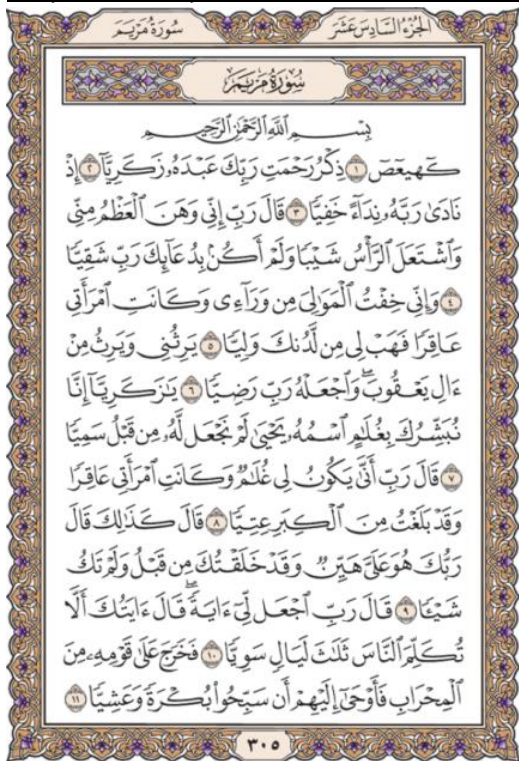 سُورَةُ مَرْيَمَ
الجُزْءُ السَّادِسَ عَشَرَ
سُورَةُ مَرْيَمَ
بِسْمِ اللَّهِ الرَّحْمَٰنِ الرَّحِيمِ
كٓهيعٓصٓ ١ ذِكْرُ رَحْمَتِ رَبِّكَ عَبْدَهُۥ زَكَرِيَّآ ٢ إِذْ
نَادَىٰ رَبَّهُۥ نِدَآءً خَفِيًّا ٣ قَالَ رَبِّ إِنِّى وَهَنَ ٱلْعَظْمُ مِنِّى
وَٱشْتَعَلَ ٱلرَّأْسُ شَيْبًا وَلَمْ أَكُنۢ بِدُعَآئِكَ رَبِّ شَقِيًّا
٤ وَإِنِّى خِفْتُ ٱلْمَوَٰلِىَ مِن وَرَآءِى وَكَانَتِ ٱمْرَأَتِى
عَاقِرًا فَهَبْ لِى مِن لَّدُنكَ وَلِيًّا ٥ يَرِثُنِى وَيَرِثُ مِنْ
ءَالِ يَعْقُوبَ ۖ وَٱجْعَلْهُ رَبِّ رَضِيًّا ٦ يَٰزَكَرِيَّآ إِنَّا
نُبَشِّرُكَ بِغُلَٰمٍ ٱسْمُهُۥ يَحْيَىٰ لَمْ نَجْعَل لَّهُۥ مِن قَبْلُ سَمِيًّا
٧ قَالَ رَبِّ أَنَّىٰ يَكُونُ لِى غُلَٰمٌ وَكَانَتِ ٱمْرَأَتِى عَاقِرًا
وَقَدْ بَلَغْتُ مِنَ ٱلْكِبَرِ عِتِيًّا ٨ قَالَ كَذَٰلِكَ قَالَ
رَبُّكَ هُوَ عَلَىَّ هَيِّنٌ وَقَدْ خَلَقْتُكَ مِن قَبْلُ وَلَمْ تَكُ
شَيْـًٔا ٩ قَالَ رَبِّ ٱجْعَل لِّىٓ ءَايَةً ۚ قَالَ ءَايَتُكَ أَلَّا
تُكَلِّمَ ٱلنَّاسَ ثَلَٰثَ لَيَالٍ سَوِيًّا ١٠ فَخَرَجَ عَلَىٰ قَوْمِهِۦ مِنَ
ٱلْمِحْرَابِ فَأَوْحَىٰٓ إِلَيْهِمْ أَن سَبِّحُوا۟ بُكْرَةً وَعَشِيًّا ١١
٣٠٥